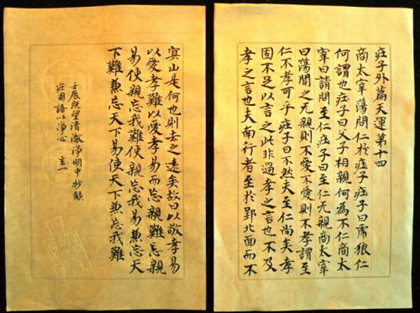 莊子外篇天運第十四
商太宰蕩問仁於莊子莊子曰虎狼仁
何謂也莊子曰父子相親何為不仁商太
宰曰請問至仁莊子曰至仁无親商太宰
曰蕩聞之无親則不愛不愛則不孝謂至
仁不孝可乎莊子曰不然夫至仁尚矣孝
固不足以言之此非過孝之言也不及
孝之言也夫南行者至於郢北面而不
冥山是何也則去之遠矣故曰以敬孝易
以愛孝難以愛孝易而忘親難忘親
易使親忘我難使親忘我易兼忘天
下難兼忘天下易使天下兼忘我難
壬辰既望清澈淨明中抄錄
莊周語以淨心